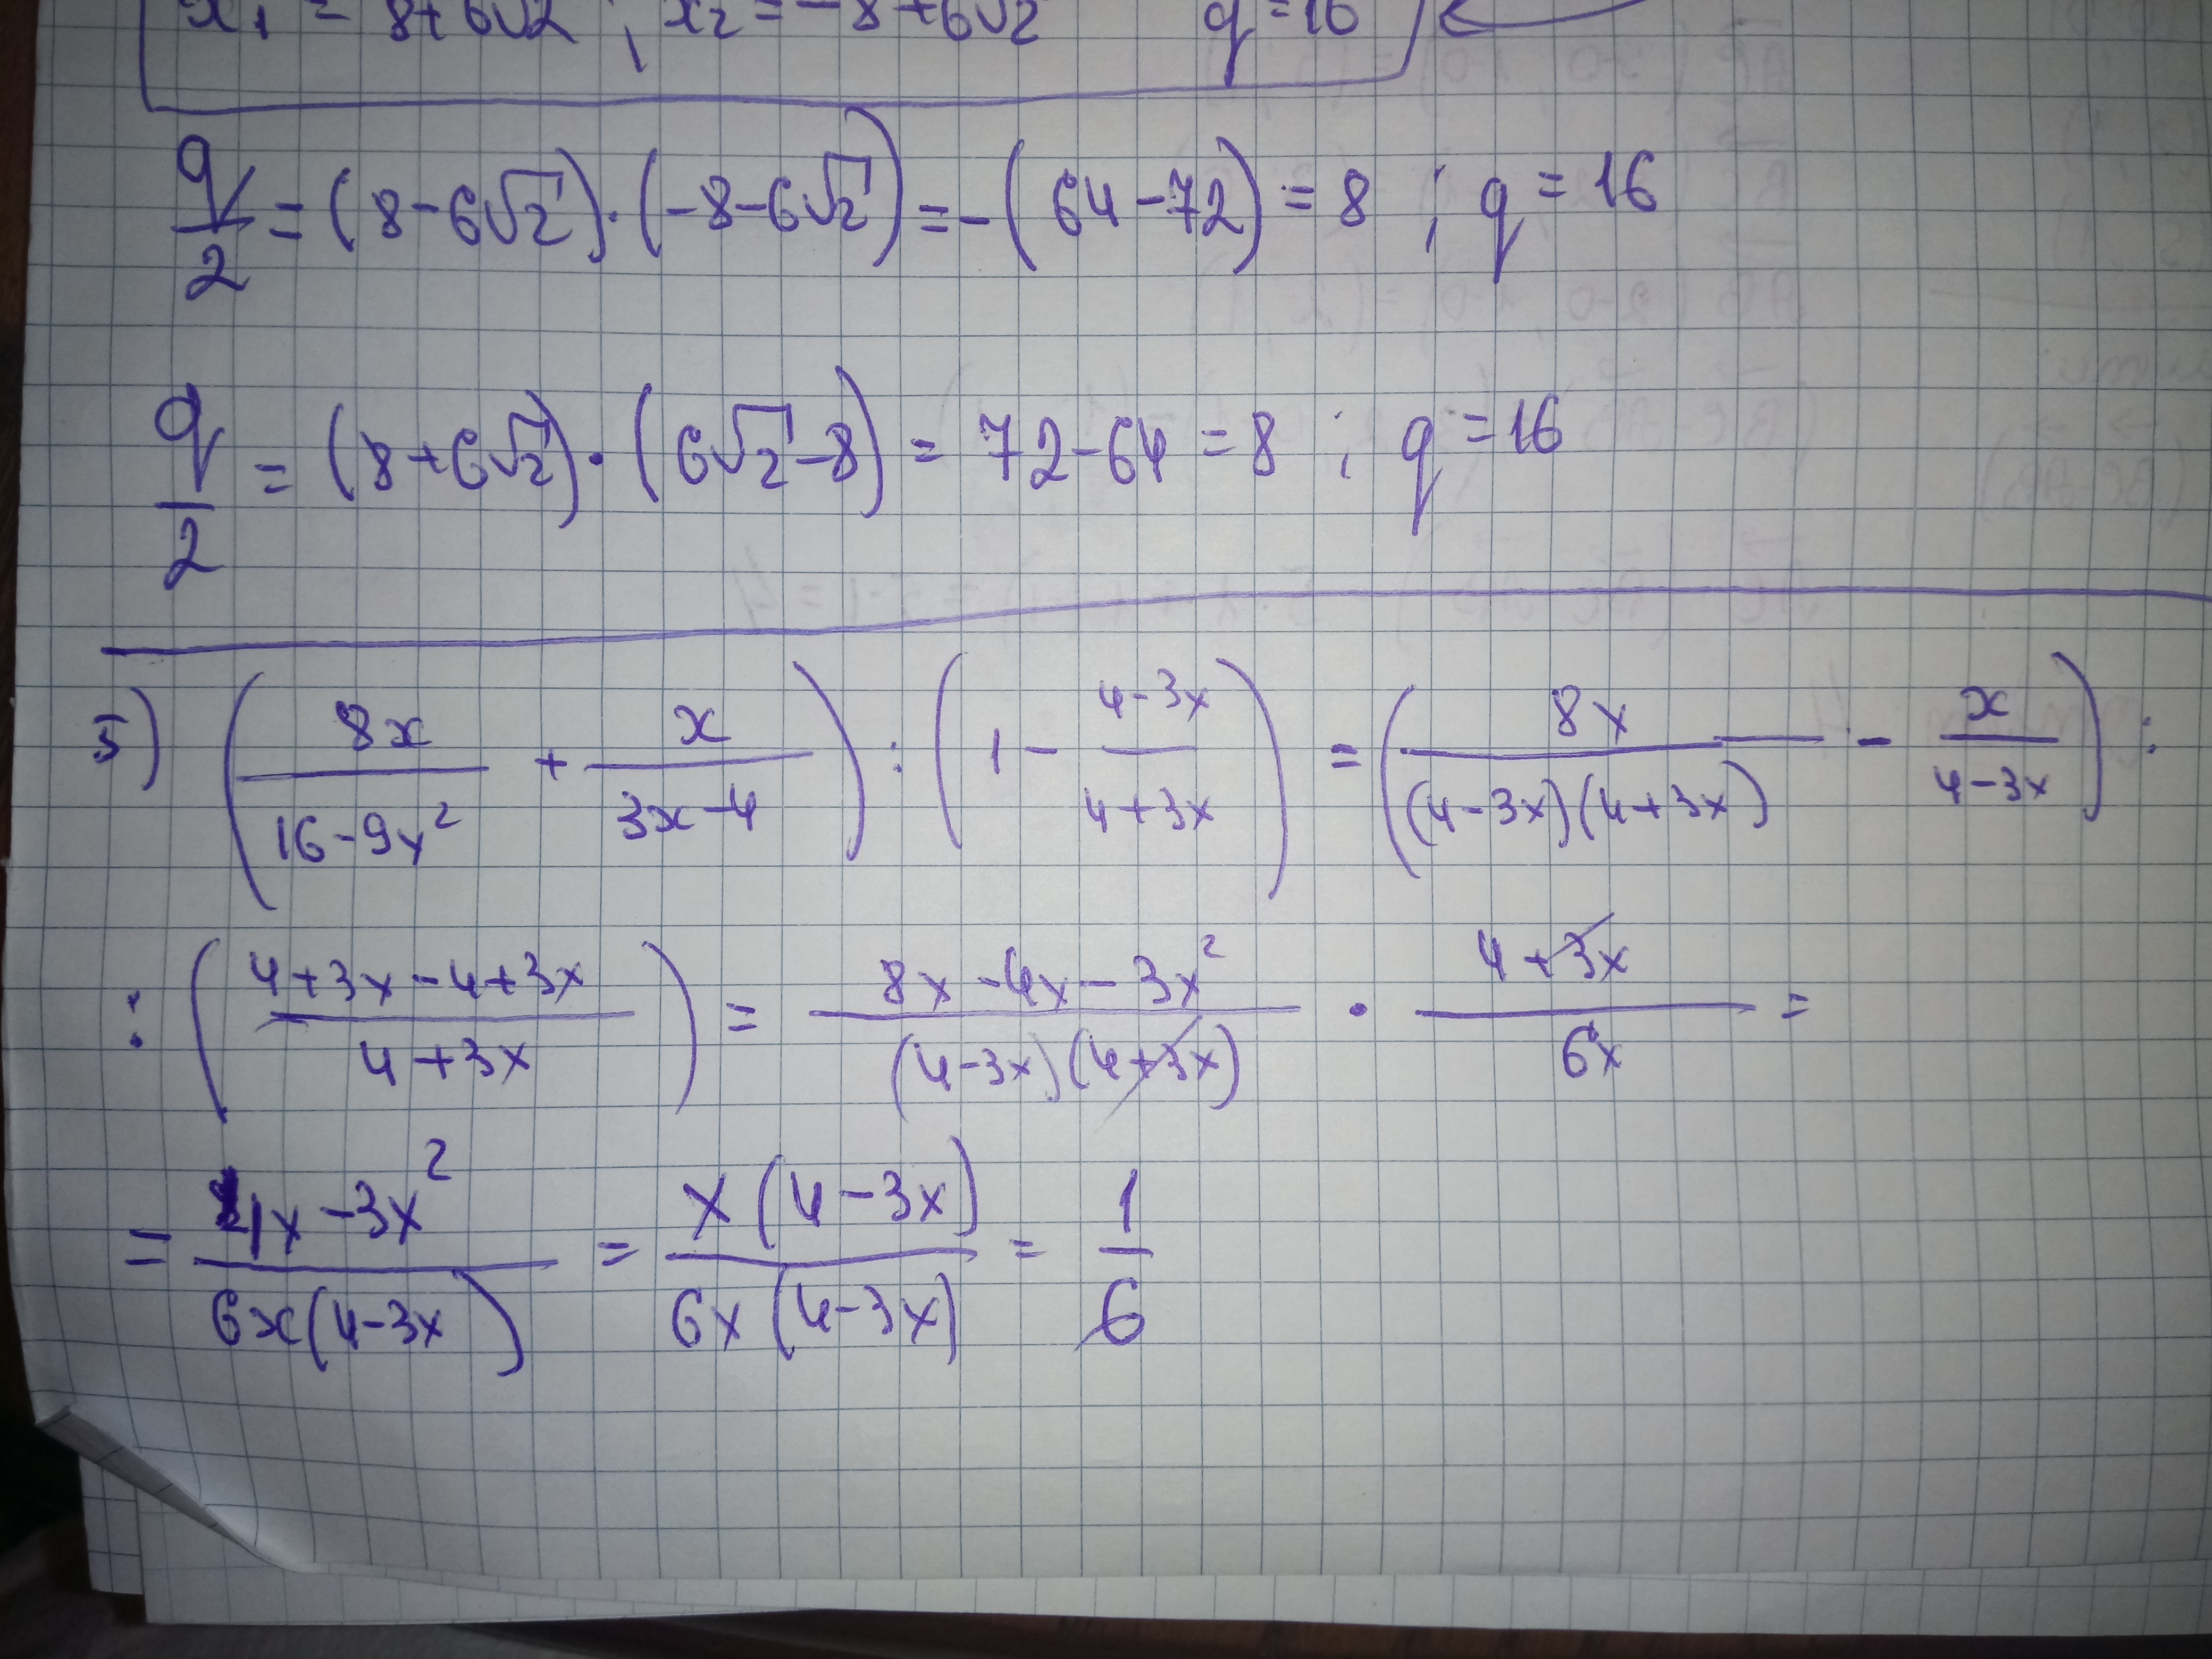 x₁ = 8+6√2 ; x₂ = -8+6√2 q=16
q/2 = (8-6√2)·(-8-6√2) = -(64-72) = 8 ; q = 16
q/2 = (8+6√2)·(6√2-8) = 72-64 = 8 ; q = 16
5) (8x/(16-9x²) + x/(3x-4)) : (1 - (4-3x)/(4+3x)) = (8x/((4-3x)(4+3x)) - x/(4-3x)) :
: ((4+3x-4+3x)/(4+3x)) = (8x-4x-3x²)/((4-3x)(4+3x)) · (4+3x)/(6x) =
= (4x-3x²)/(6x(4-3x)) = x(4-3x)/(6x(4-3x)) = 1/6